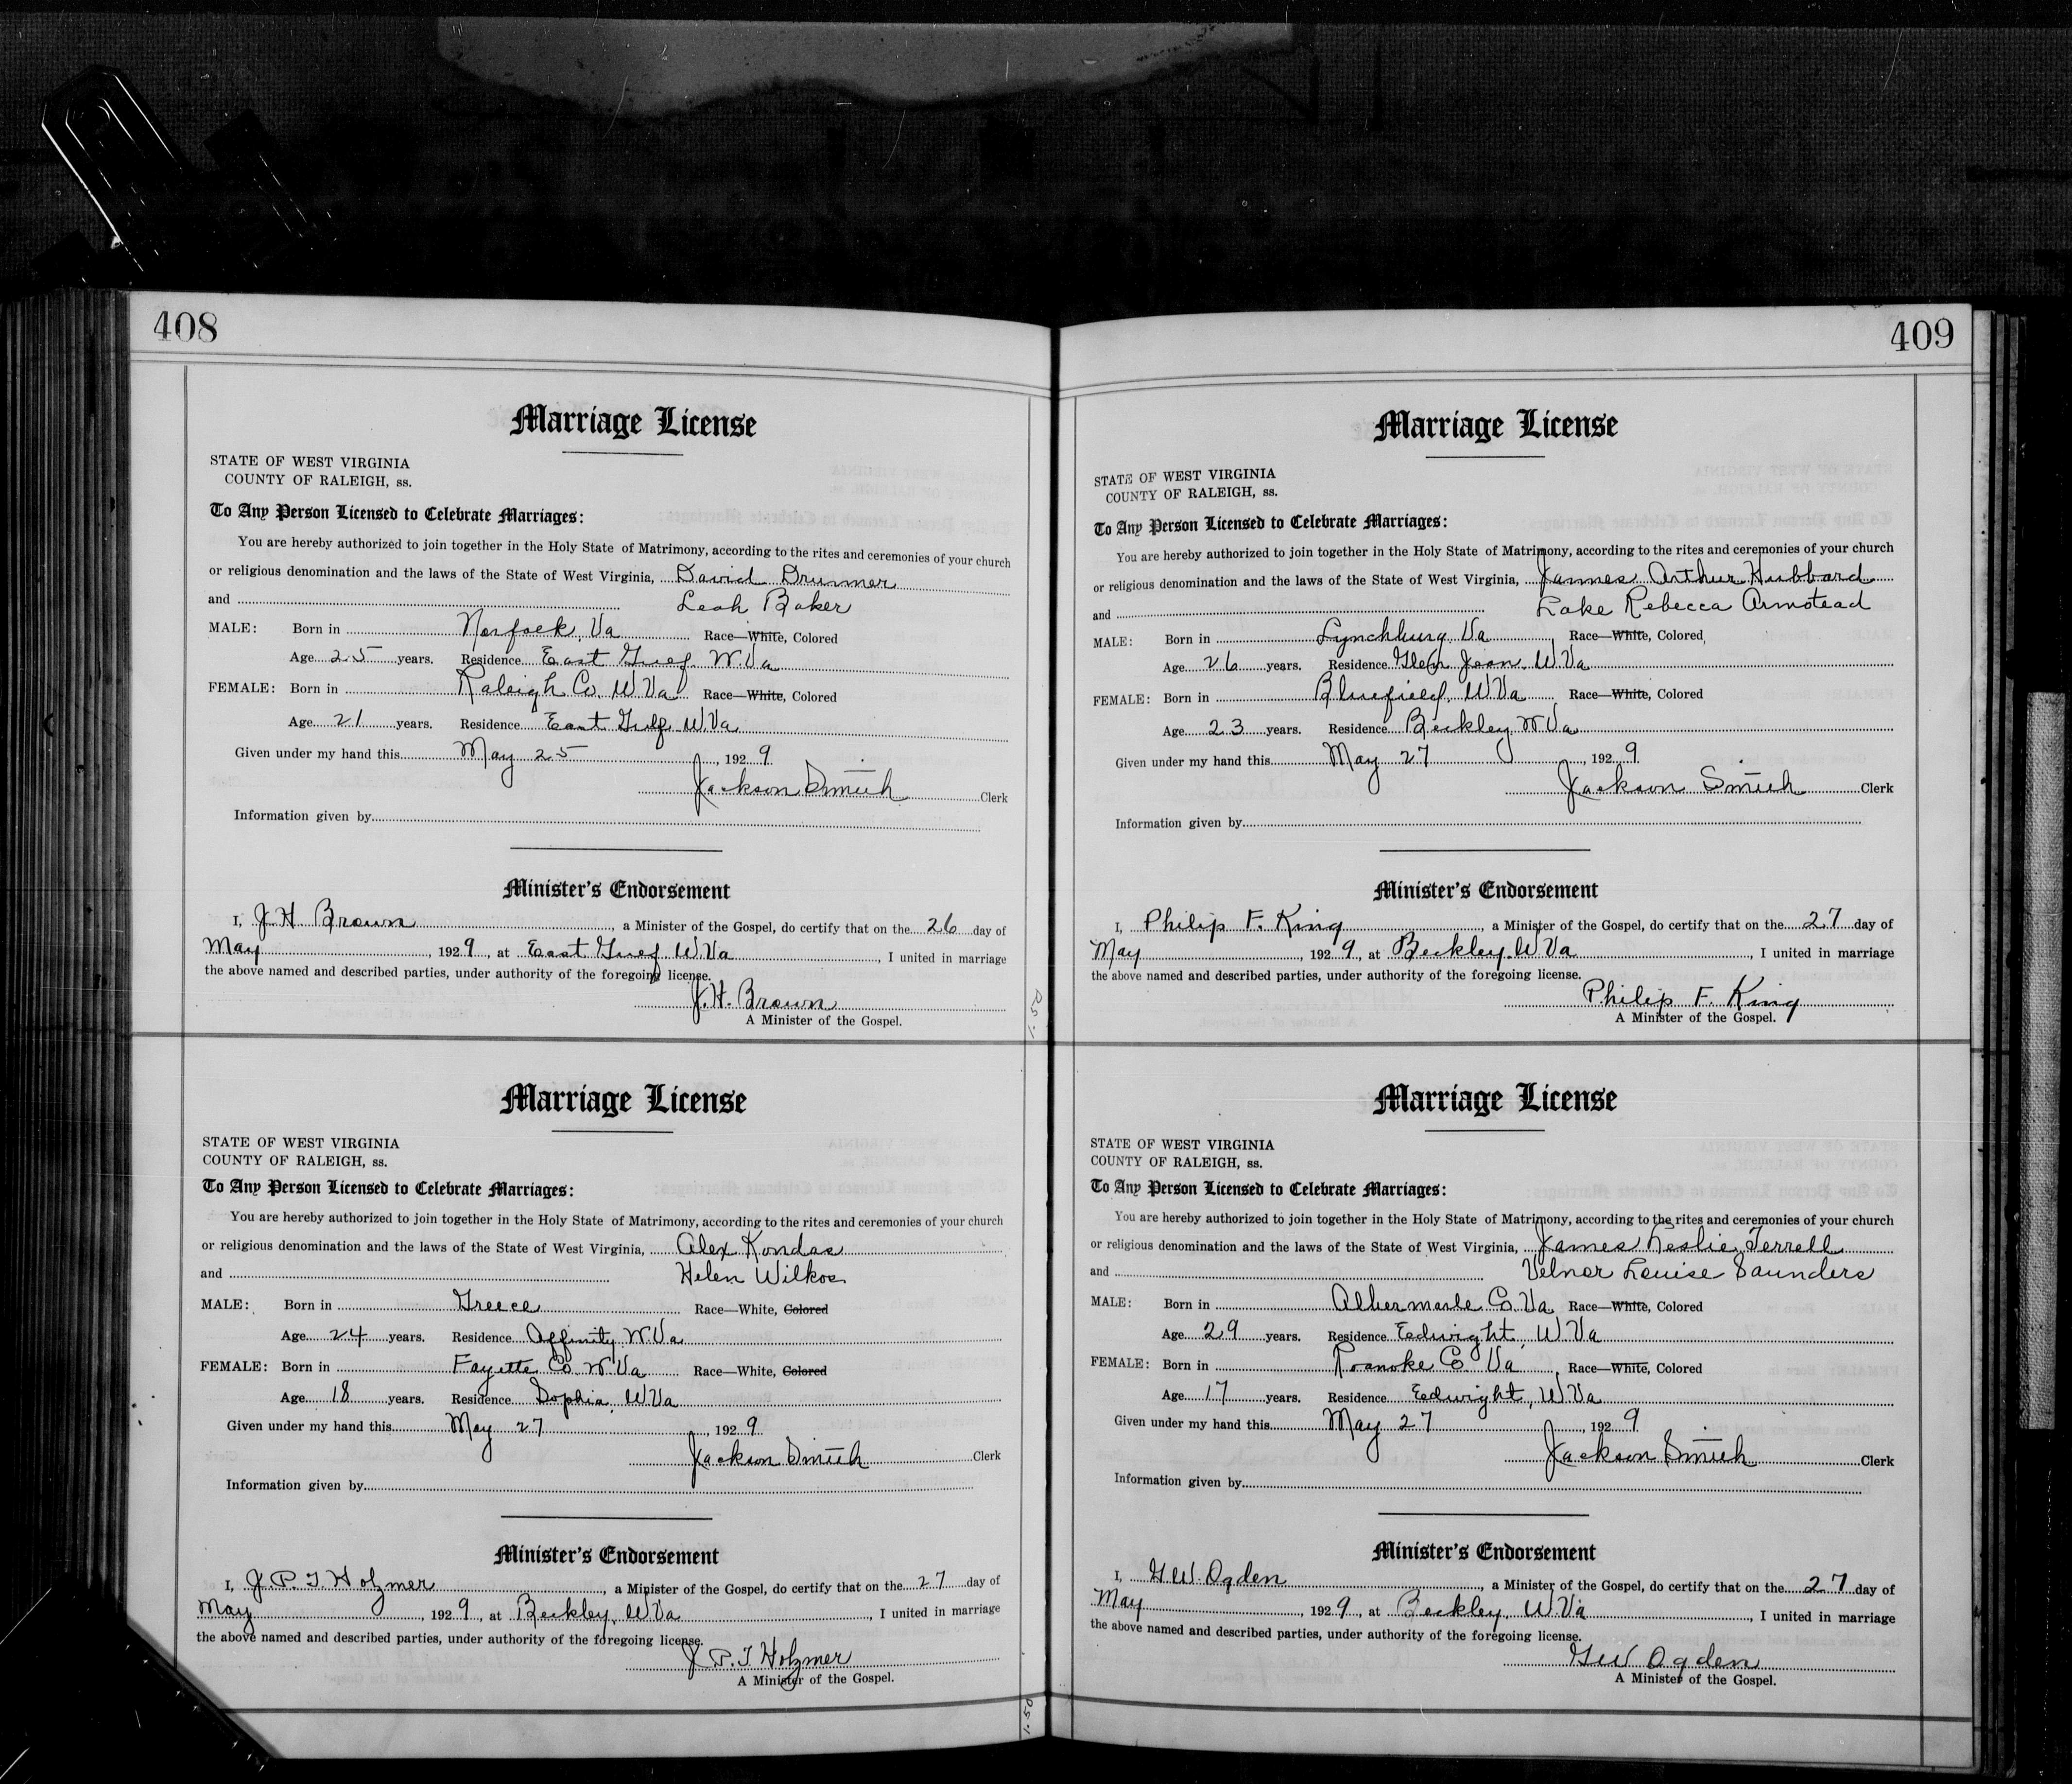 408
Marriage License
STATE OF WEST VIRGINIA
COUNTY OF RALEIGH, ss.
To Any Person Licensed to Celebrate Marriages:
You are hereby authorized to join together in the Holy State of Matrimony, according to the rites and ceremonies of your church
or religious denomination and the laws of the State of West Virginia, David Drummer
and Leah Baker
MALE: Born in Norfolk, Va Race—White, Colored
Age 25 years. Residence East Gulf W.Va
FEMALE: Born in Raleigh Co. W Va Race—White, Colored
Age 21 years. Residence East Gulf W.Va
Given under my hand this May 25, 1929
Jackson Smith Clerk
Information given by
Minister's Endorsement
I, J.H. Brown, a Minister of the Gospel, do certify that on the 26 day of
May, 1929, at East Gulf W.Va, I united in marriage
the above named and described parties, under authority of the foregoing license.
J.H. Brown
A Minister of the Gospel.
Marriage License
STATE OF WEST VIRGINIA
COUNTY OF RALEIGH, ss.
To Any Person Licensed to Celebrate Marriages:
You are hereby authorized to join together in the Holy State of Matrimony, according to the rites and ceremonies of your church
or religious denomination and the laws of the State of West Virginia, Alex Kondas
and Helen Wilkos
MALE: Born in Greece Race—White, Colored
Age 24 years. Residence Affinity W.Va
FEMALE: Born in Fayette Co. W.Va Race—White, Colored
Age 18 years. Residence Sophia, W.Va
Given under my hand this May 27, 1929
Jackson Smith Clerk
Information given by
Minister's Endorsement
I, J.P.T. Holzmer, a Minister of the Gospel, do certify that on the 27 day of
May, 1929, at Beckley, W.Va, I united in marriage
the above named and described parties, under authority of the foregoing license.
J.P.T. Holzmer
A Minister of the Gospel.
409
Marriage License
STATE OF WEST VIRGINIA
COUNTY OF RALEIGH, ss.
To Any Person Licensed to Celebrate Marriages:
You are hereby authorized to join together in the Holy State of Matrimony, according to the rites and ceremonies of your church
or religious denomination and the laws of the State of West Virginia, James Arthur Hubbard
and Lake Rebecca Armstead
MALE: Born in Lynchburg, Va, Race—White, Colored,
Age 26 years. Residence Glen Jean, W.Va
FEMALE: Born in Bluefield, W.Va Race—White, Colored
Age 23 years. Residence Beckley W.Va
Given under my hand this May 27, 1929
Jackson Smith Clerk
Information given by
Minister's Endorsement
I, Philip F. King, a Minister of the Gospel, do certify that on the 27 day of
May, 1929, at Beckley W.Va, I united in marriage
the above named and described parties, under authority of the foregoing license.
Philip F. King
A Minister of the Gospel.
Marriage License
STATE OF WEST VIRGINIA
COUNTY OF RALEIGH, ss.
To Any Person Licensed to Celebrate Marriages:
You are hereby authorized to join together in the Holy State of Matrimony, according to the rites and ceremonies of your church
or religious denomination and the laws of the State of West Virginia, James Leslie Terrell
and Velner Louise Saunders
MALE: Born in Albermarle Co. Va Race—White, Colored
Age 29 years. Residence Edwight, W.Va
FEMALE: Born in Roanoke Co Va, Race—White, Colored
Age 17 years. Residence Edwight, W.Va
Given under my hand this May 27, 1929
Jackson Smith Clerk
Information given by
Minister's Endorsement
I, G.W. Ogden, a Minister of the Gospel, do certify that on the 27 day of
May, 1929, at Beckley, W.Va, I united in marriage
the above named and described parties, under authority of the foregoing license.
G.W. Ogden
A Minister of the Gospel.